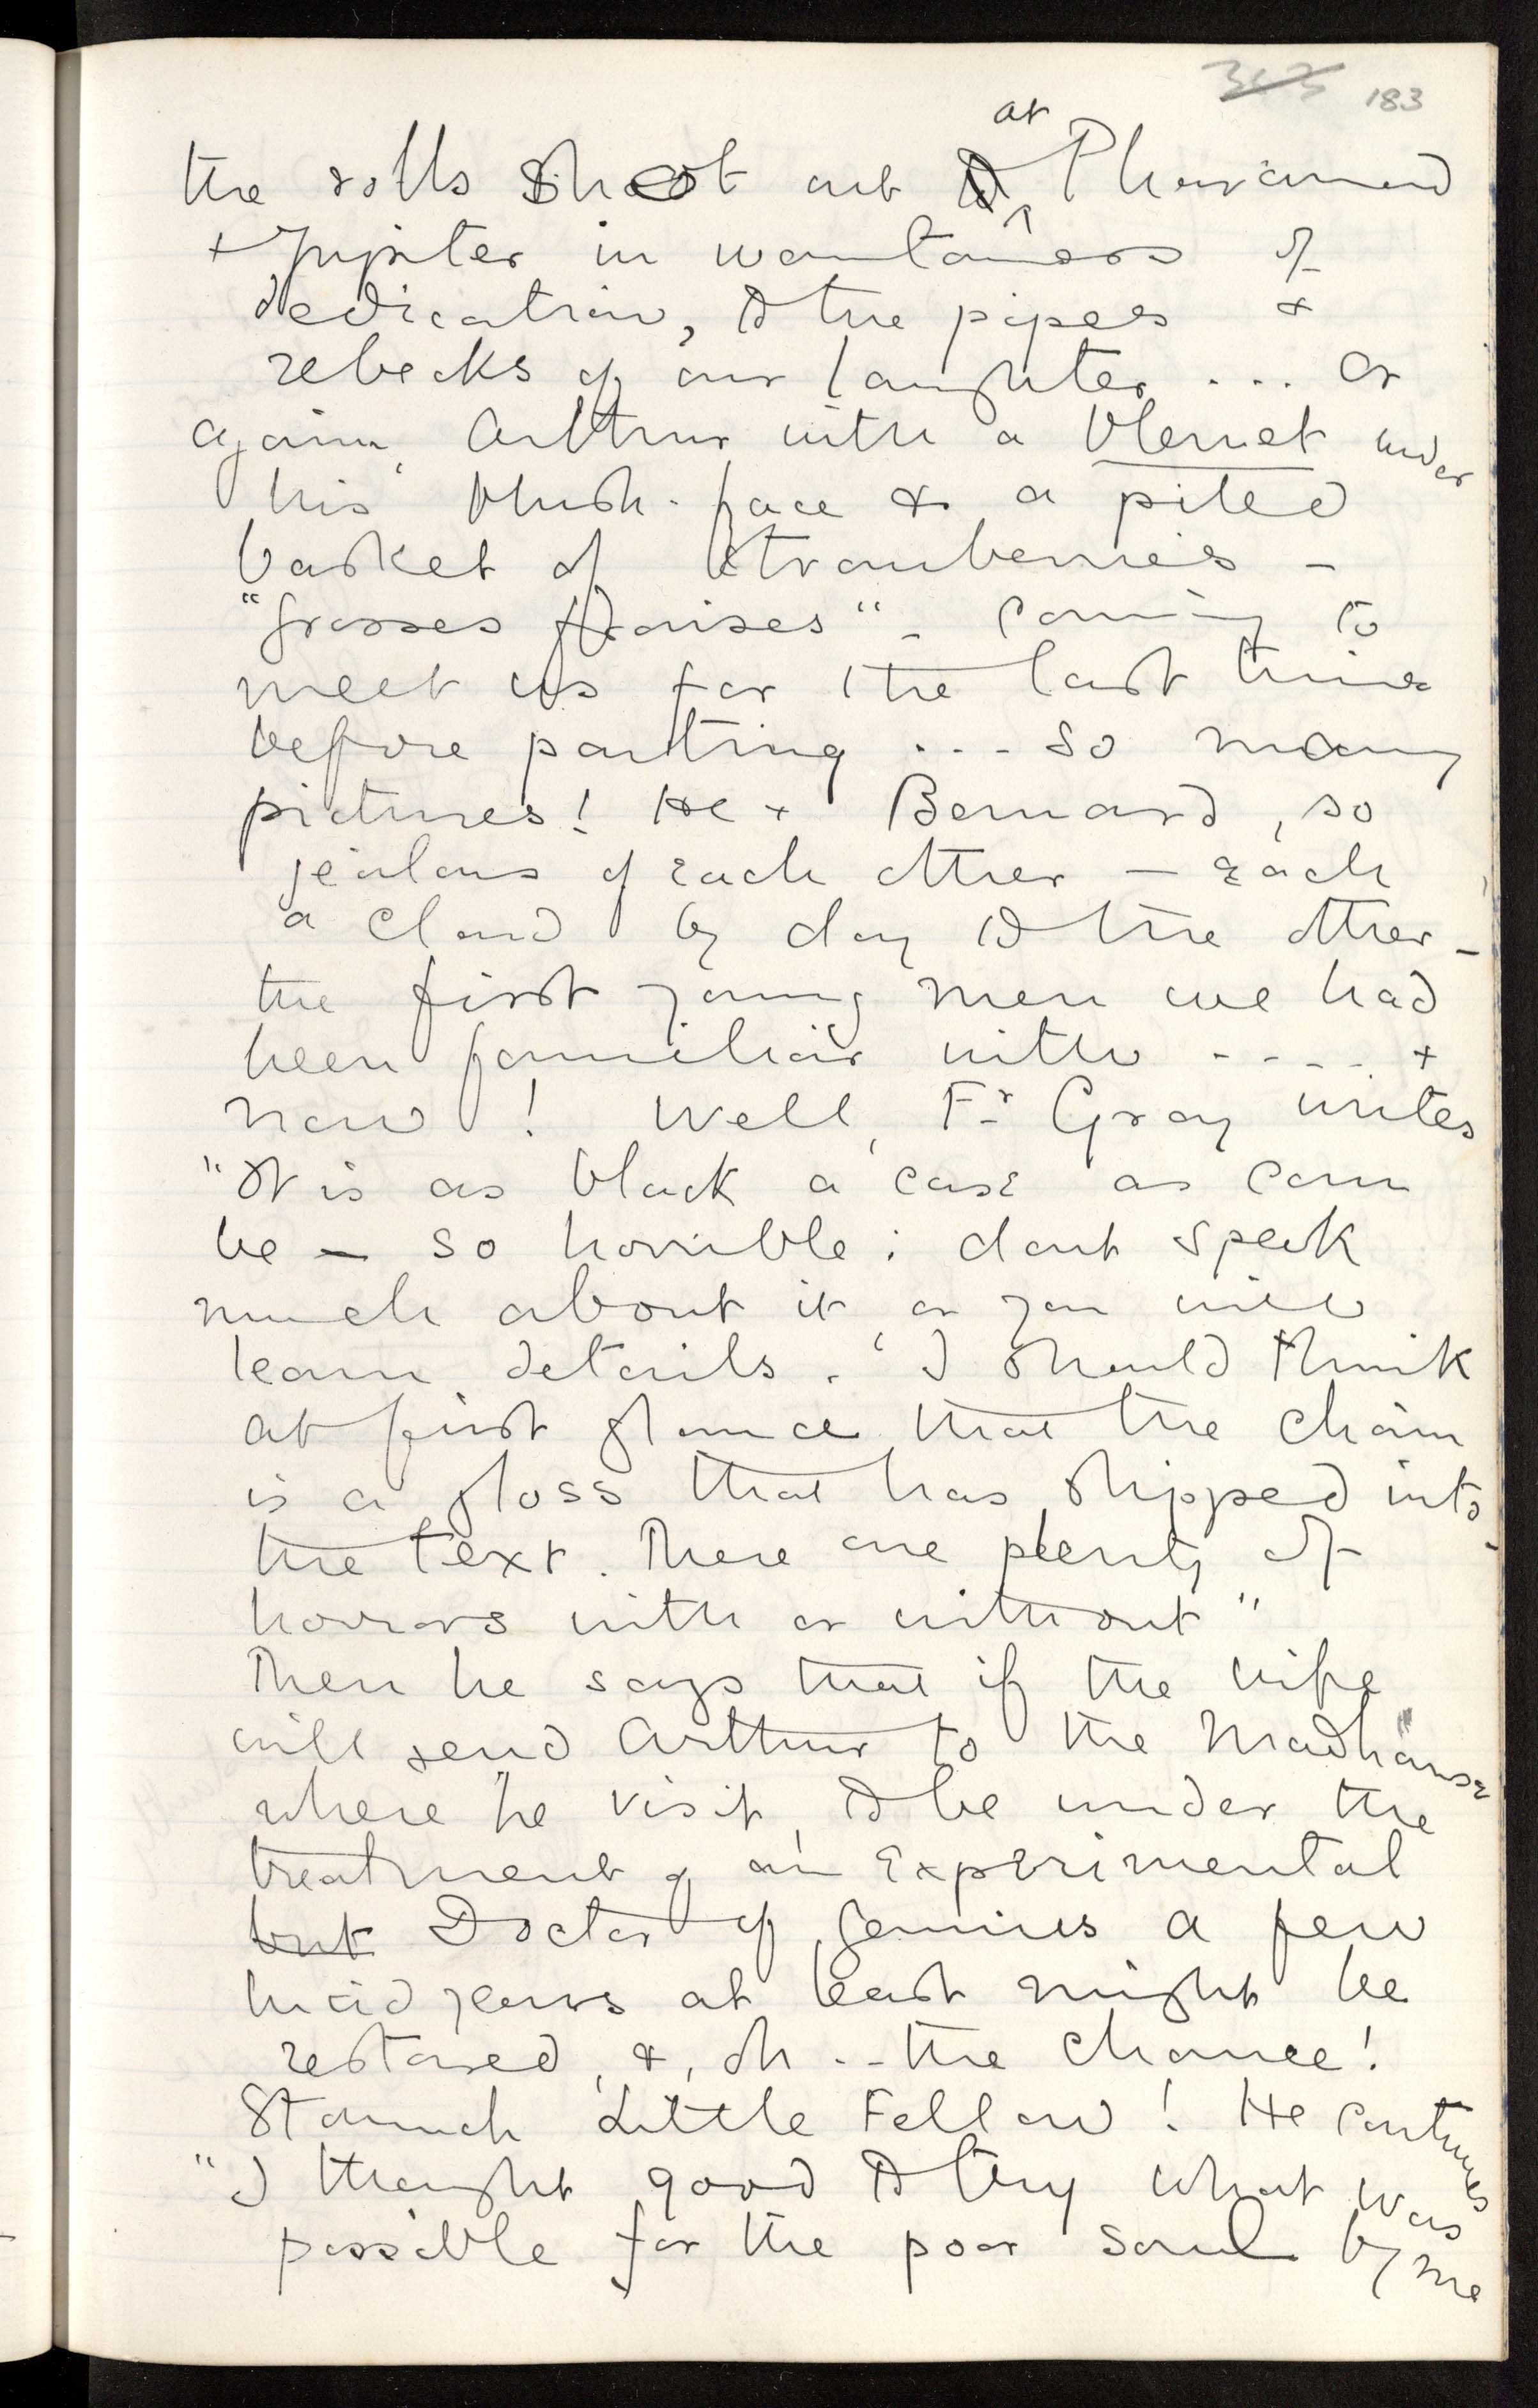 183
at
the rolls shoot out Pharamond
+ Jupiter in wantonness of
dedication, to the pipes &
rebecks of our laughter ... Or
again, Arthur with a bleuet under
his blush-face & a piled
basket of strawberries –
"grosses fraises" – coming to
meet us for the last time
before parting ... so many
pictures! He + Bernard, so
jealous of each other – each
a cloud by day to the other –
the first young men we had
been familiar with .... +
now! Well, Fr Gray writes
"It is as black a case as can
be – so horrible; dont speak
much about it, or you will
learn details. I should think
at first glance that the chain
is a gloss that has slipped into
the text. There are plenty of
horrors with or without"
Then he says that if the wife
will send Arthur to the Madhouse
where he visit, to be under the
treatment of an experimental
but Doctor of genius a few
lucid years at least might be
restored, &, oh .. the chance!
Staunch Little Fellow! He continues
"I thought good to try what was
possible for the poor soul by me